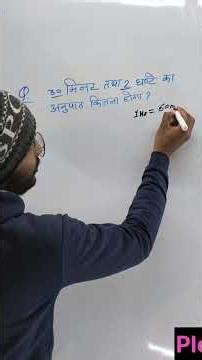 Q 30 मिनट तथा 2 घण्टे का
अनुपात कितना होगा ?
1 Hr = 60 m
Ple